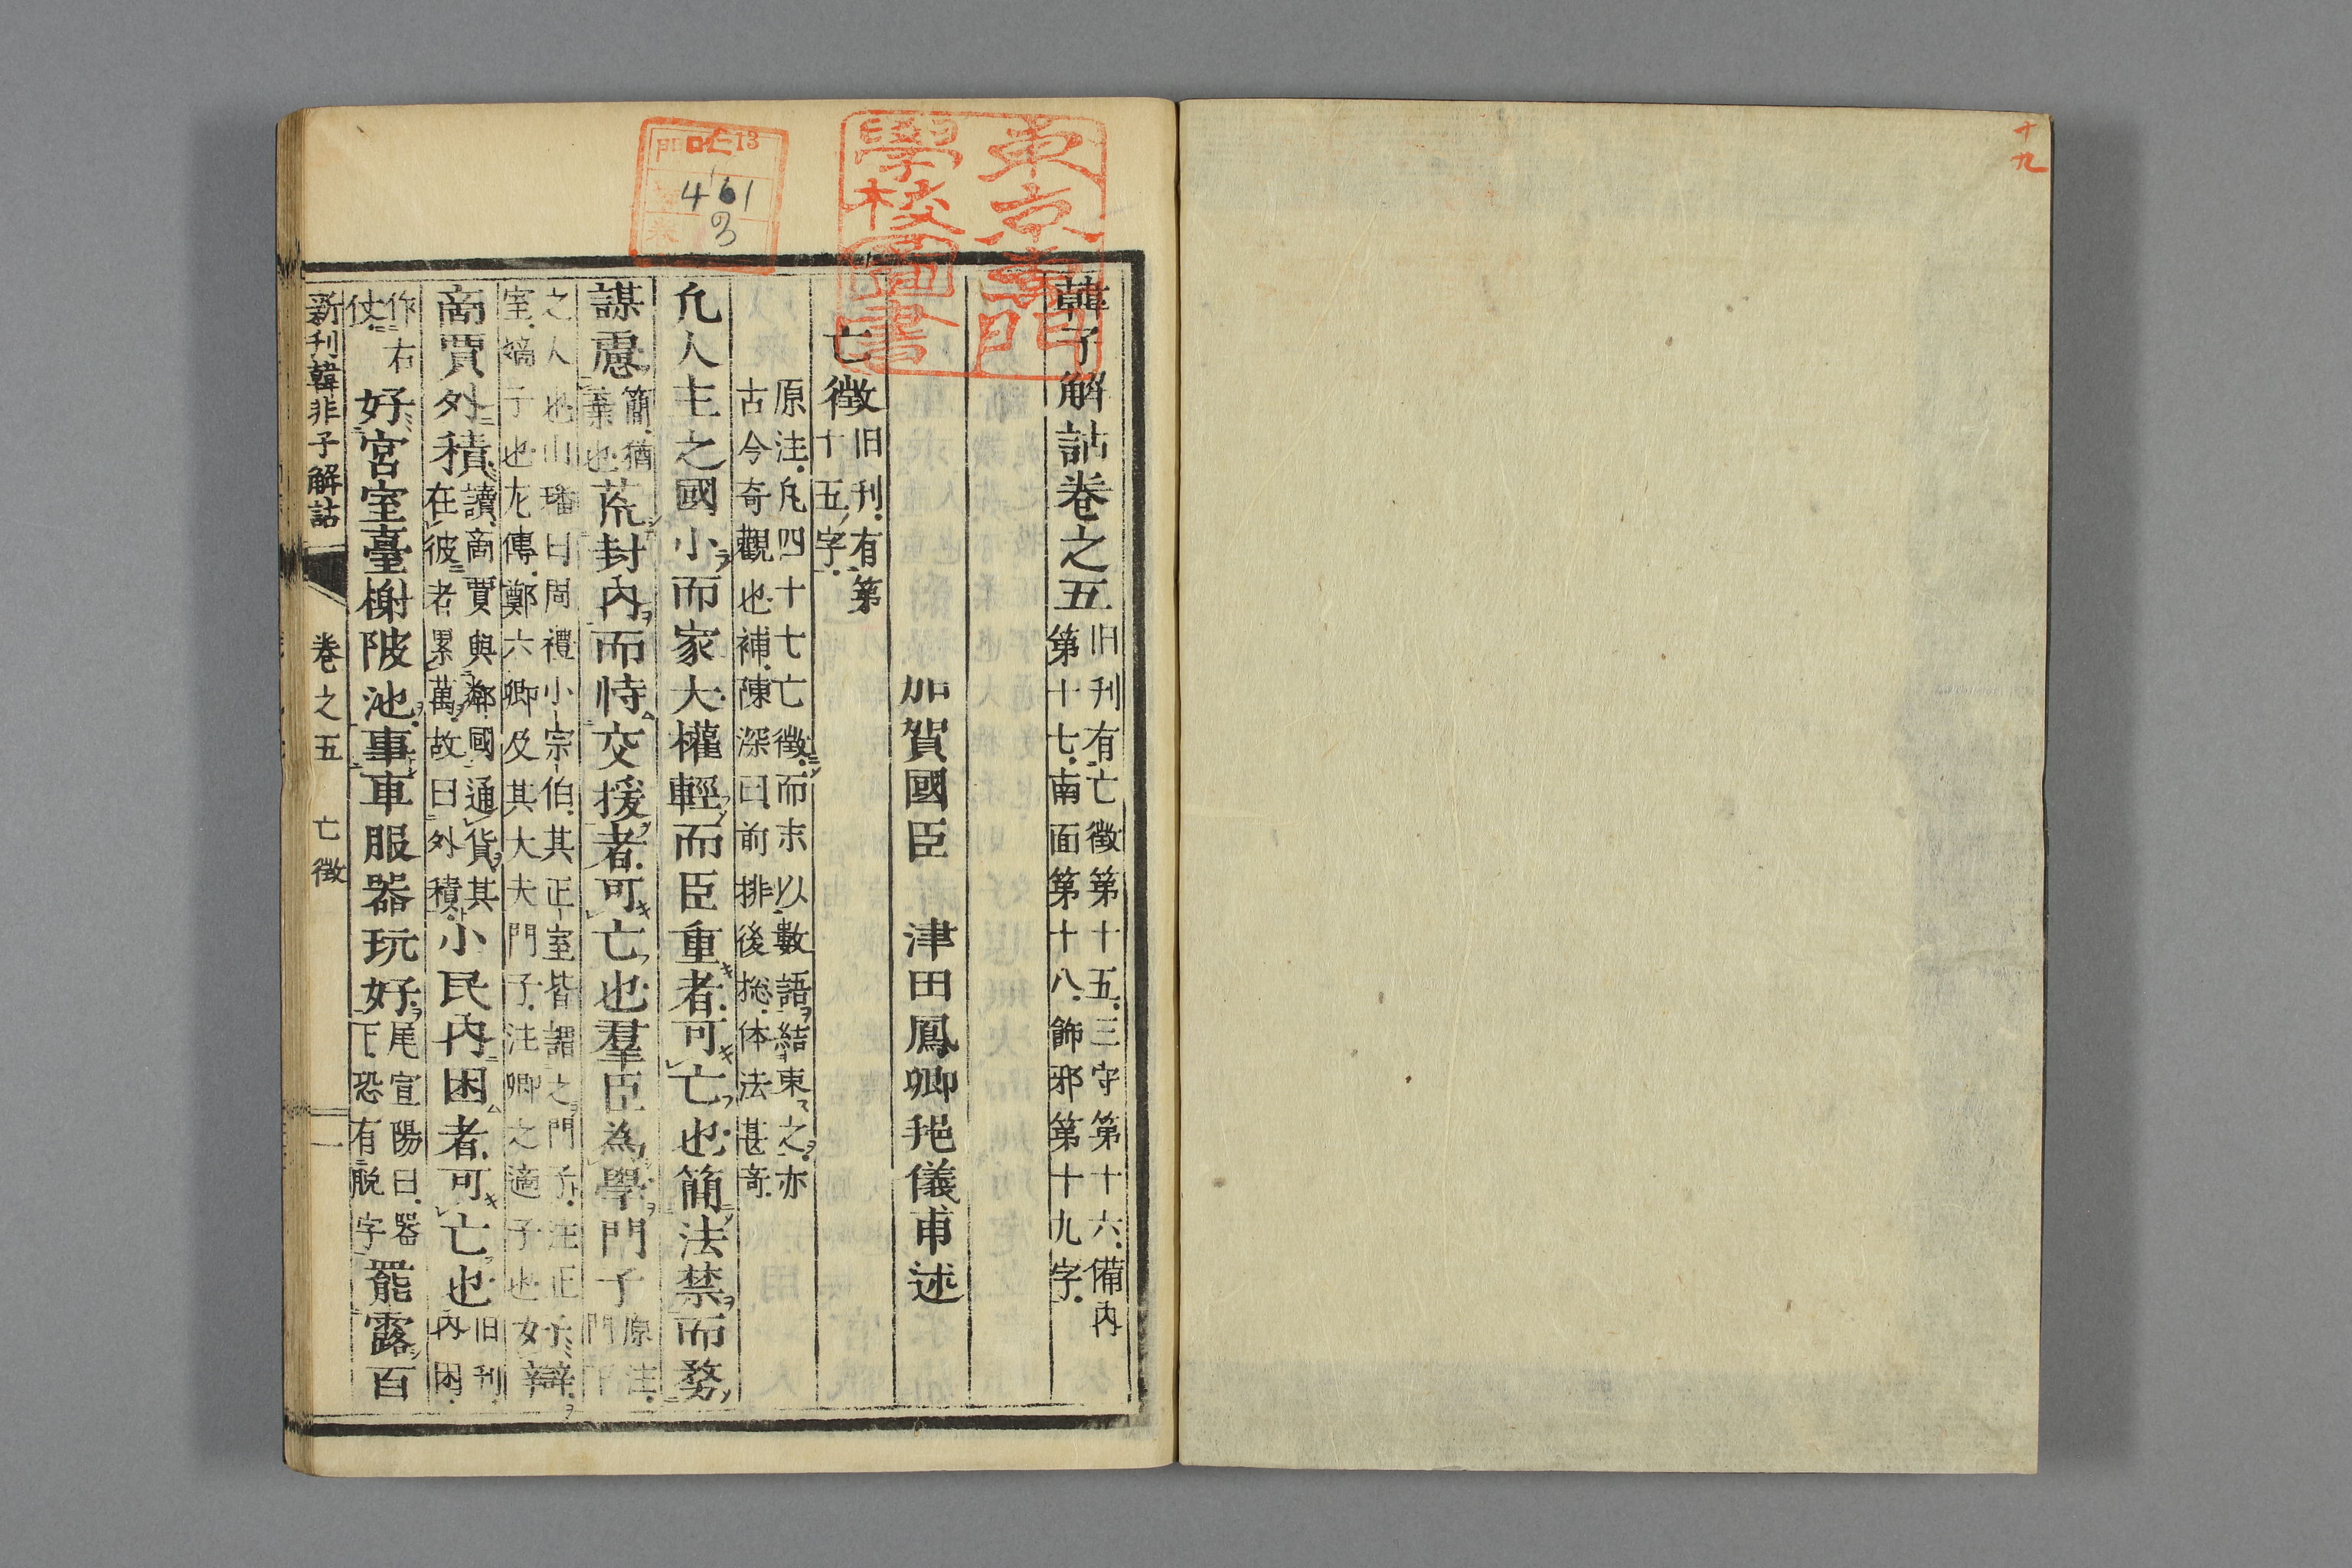 十九
東京專門
學校圖書
13
461
3
韓子解詁卷之五 旧刊有亡徵第十五三守第十六備內
第十七南面第十八飾邪第十九字
加賀國臣 津田鳳卿 邦儀甫述
亡徵 旧刊有第
十五字
原注凢四十七亡徵而末以數語結束之亦
古今奇觀也補陳深曰前排後捴体法甚竒
凢人主之國小而家大權輕而臣重者可亡也簡法禁而務
謀慮 簡猶
棄也 荒封內而恃交援者可亡也羣臣為學門子 原注
門子
之人也山璠曰周禮小宗伯其正室皆謂之門子注正
室嫡子也左傳鄭六卿及其大夫門子注卿之適子也 好辯
商賈外積 讀商賈與鄰國通貨其
在彼者累萬故曰外積 小民內困者可亡也 旧刊
內困
作右
仗 好宮室臺榭陂池事車服器玩好 尾宣陽曰器
下恐有脫字 罷露百
新刊韓非子解詁 卷之五 亡徵 一